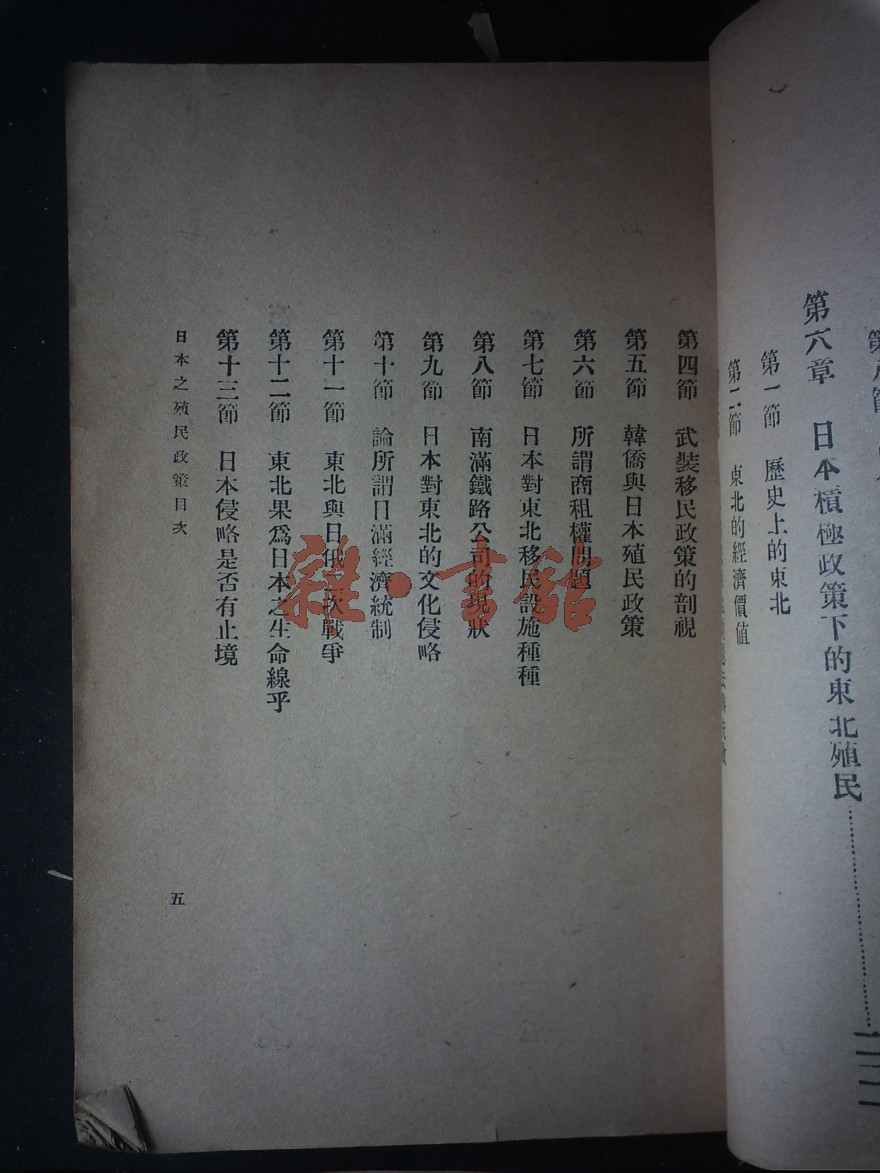 第六章 日本積極政策下的東北殖民
第一節 歷史上的東北
第二節 東北的經濟價值
第四節 武裝移民政策的剖視
第五節 韓僑與日本殖民政策
第六節 所謂商租權問題
第七節 日本對東北移民設施種種
第八節 南滿鐵路公司的現狀
第九節 日本對東北的文化侵略
第十節 論所謂日滿經濟統制
第十一節 東北與日俄二次戰爭
第十二節 東北果爲日本之生命線乎
第十三節 日本侵略是否有止境
日本之殖民政策目次
五
雜·書館